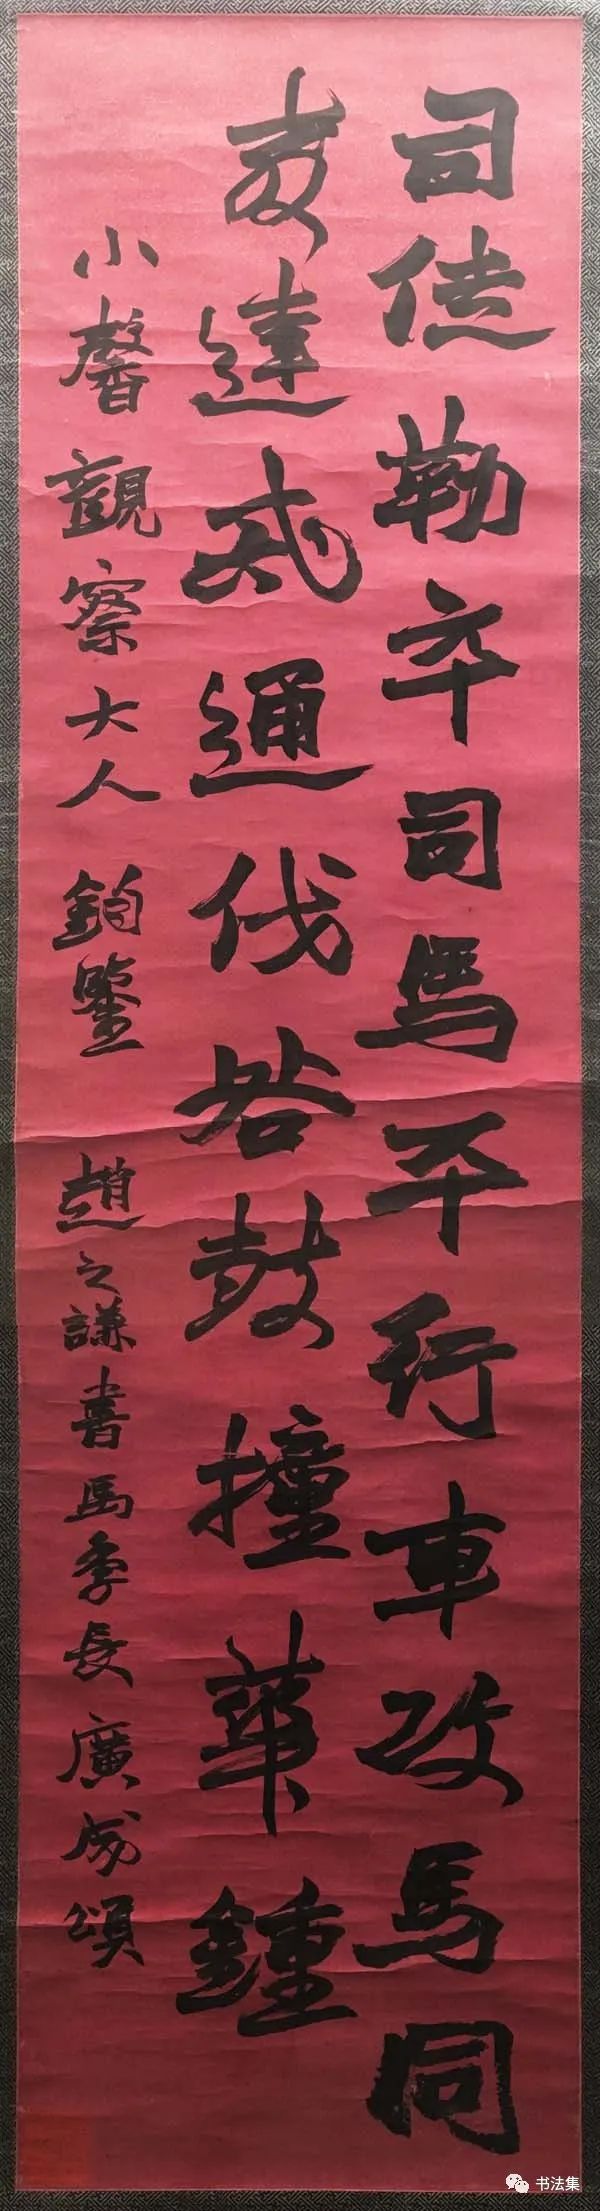 司徒勒卒司馬平行車攻馬同
教達戒通伐咎鼓撞華鍾
小馨觀察大人 鈞鑒 趙之謙書馬季長廣成頌
书法集